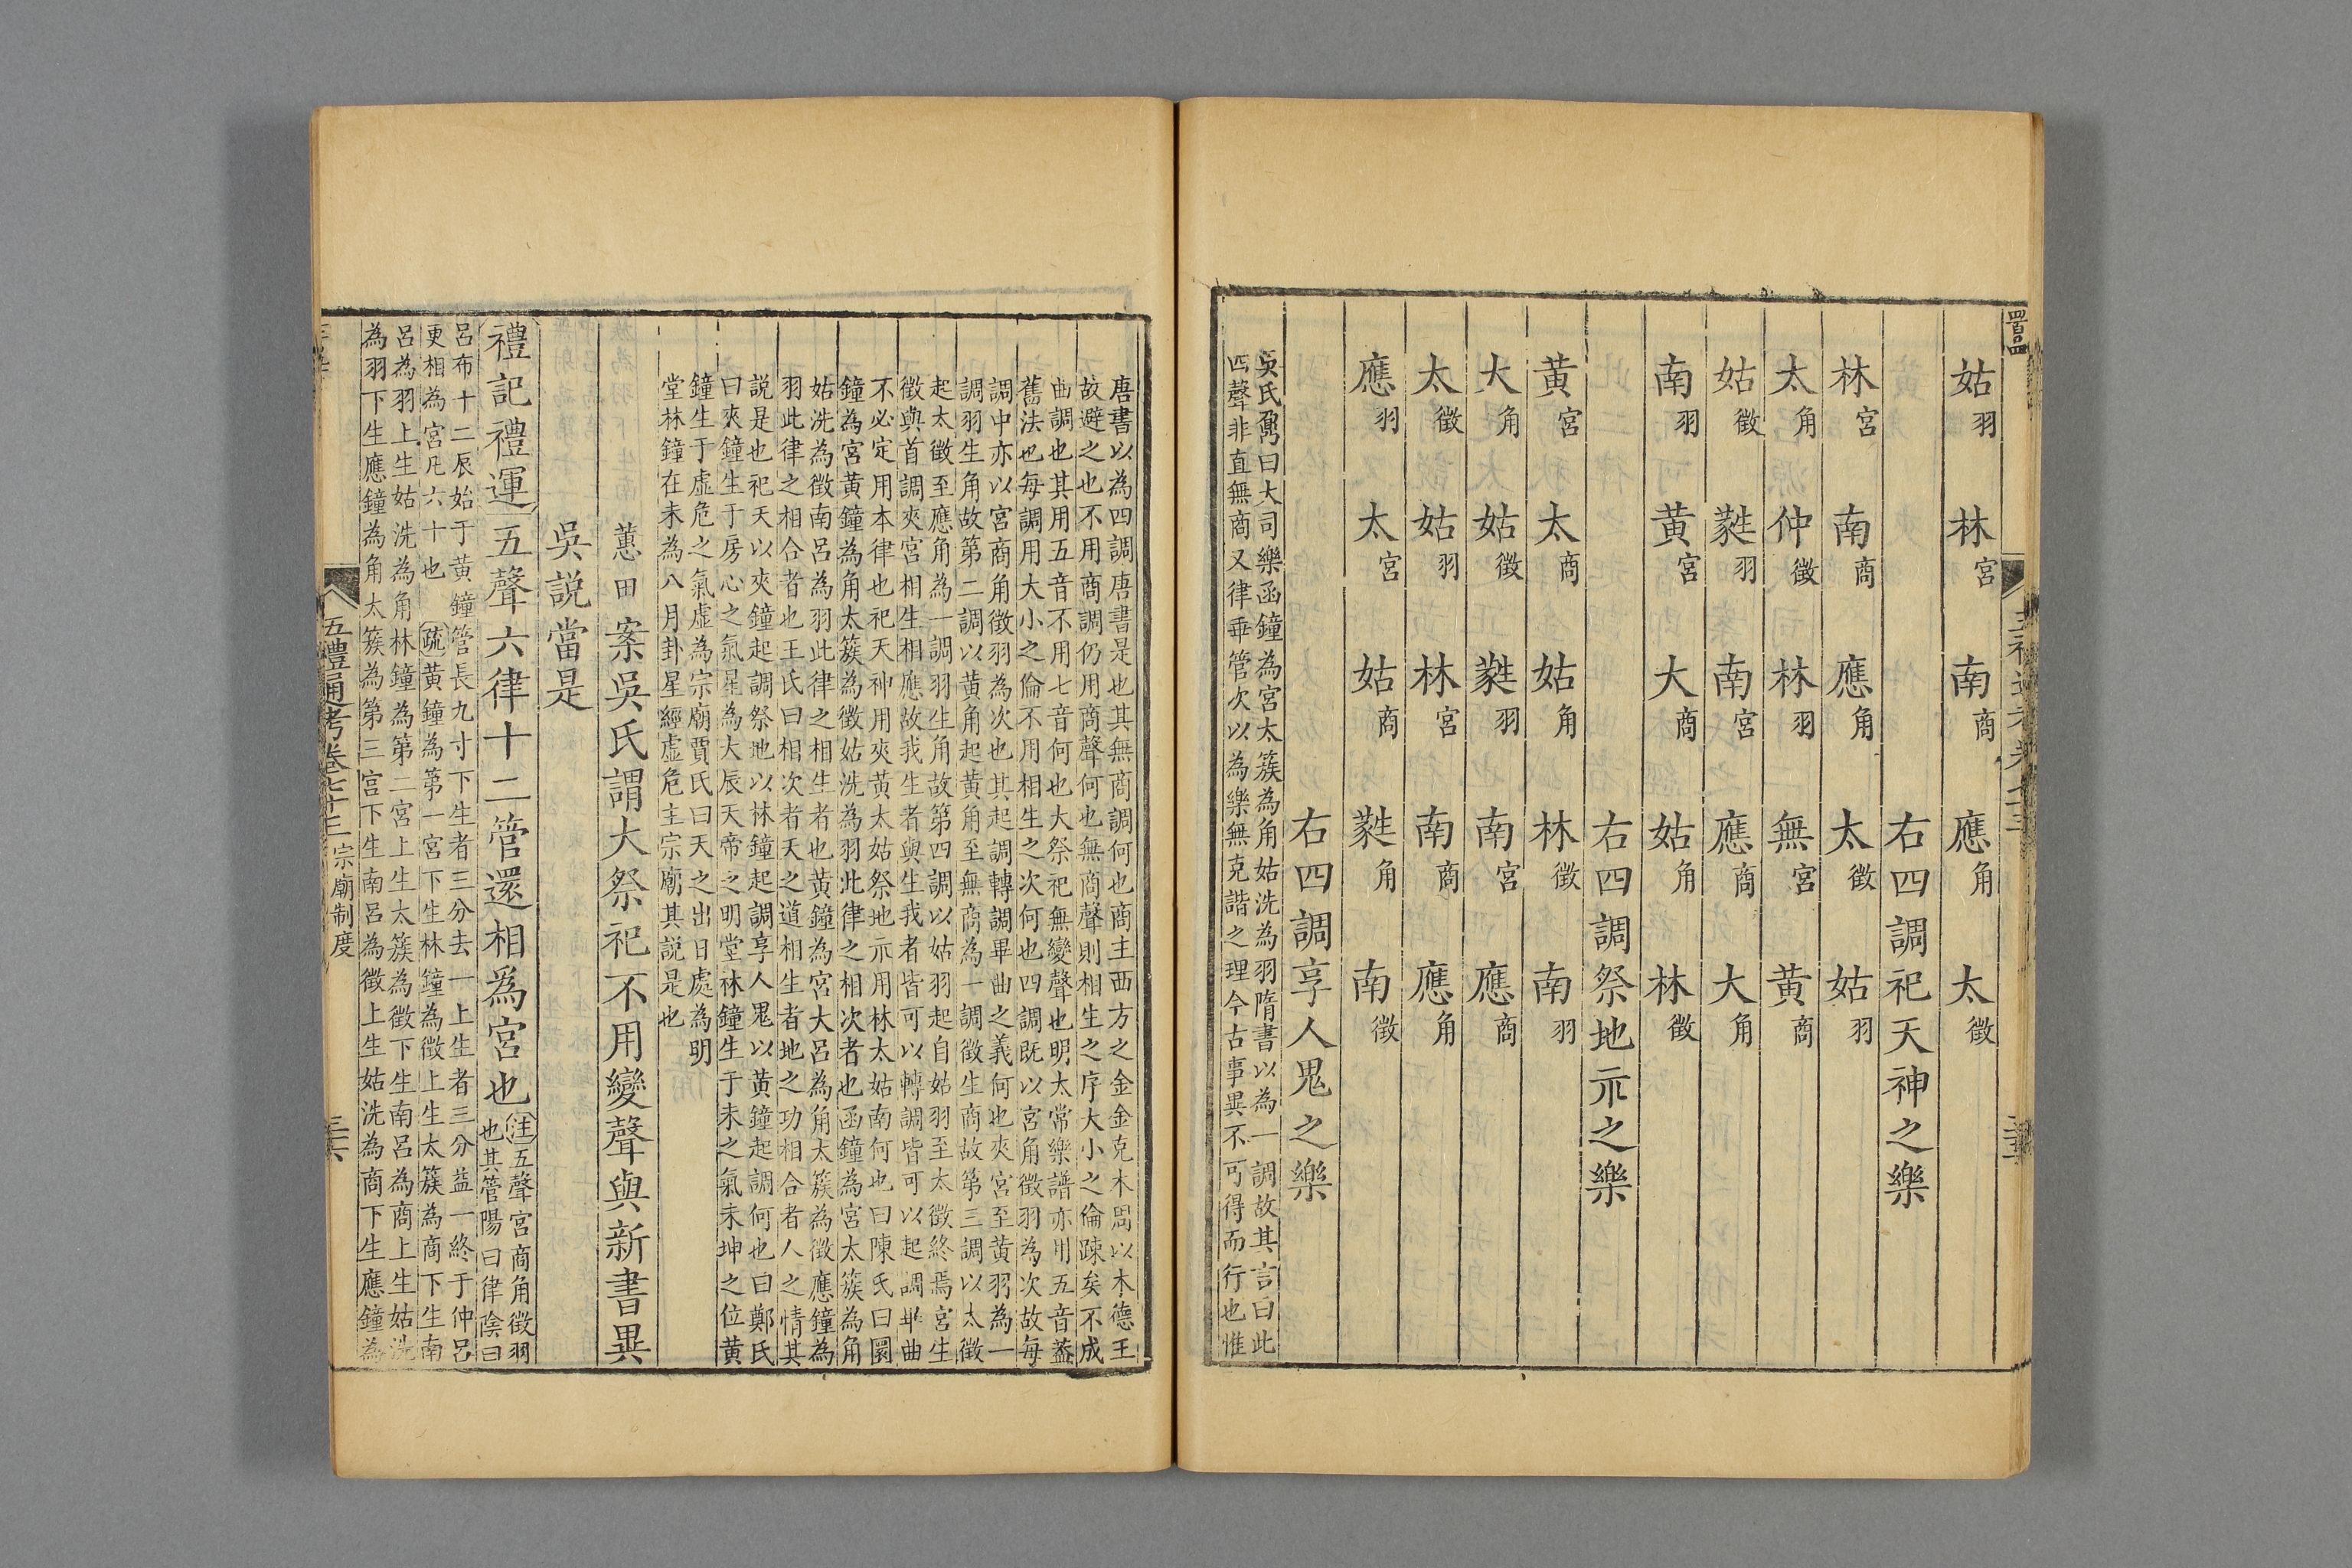 姑羽 林宮 南商 應角 太徵
右四調祀天神之樂
林宮 南商 應角 太徵 姑羽
太角 仲徵 林羽 無宮 黃商
姑徵 蕤羽 南宮 應商 大角
南羽 黃宮 大商 姑角 林徵
右四調祭地示之樂
黃宮 太商 姑角 林徵 南羽
大角 姑徵 蕤羽 南宮 應商
太徵 姑羽 林宮 南商 應角
應羽 太宮 姑商 蕤角 南徵
右四調享人鬼之樂
吳氏鼐曰大司樂函鐘為宮太簇為角姑洗為羽隋書以為一調故其言曰此
四聲非直無商又律乖管次以為樂無克諧之理今古事異不可得而行也惟
唐書以為四調唐書是也其無商調何也商主西方之金金克木周以木德王
故避之也不用商調仍用商聲何也無商聲則相生之序大小之倫踈矣不成
曲調也其用五音不用七音何也大祭祀無變聲也明太常樂譜亦用五音葢
舊法也每調用大小之倫不用相生之次何也四調既以宮角徵羽為次故每
調中亦以宮商角徵羽為次也其起調轉調畢曲之義何也夾宮至黃羽為一
調羽生角故第二調以黃角起黃角至無商為一調徵生商故第三調以太徵
起太徵至應角為一調羽生角故第四調以姑羽起自姑羽至太徵終焉宮生
徵與首調夾宮相生相應故我生者與生我者皆可以轉調皆可以起調畢曲
不必定用本律也祀天神用夾黃太姑祭地示用林太姑南何也曰陳氏曰圜
鐘為宮黃鐘為角太簇為徵姑洗為羽此律之相次者也函鐘為宮太簇為角
姑洗為徵南呂為羽此律之相生者也黃鐘為宮大呂為角太簇為徵應鐘為
羽此律之相合者也王氏曰相次者天之道相生者地之功相合者人之情其
說是也祀天以夾鐘起調祭地以林鐘起調享人鬼以黃鐘起調何也曰鄭氏
曰夾鐘生于房心之氣星為大辰天帝之明堂林鐘生于未之氣未坤之位黃
鐘生于虛危之氣虛為宗廟賈氏曰天之出日處為明
堂林鐘在未為八月卦星經虛危主宗廟其說是也
蕙田案吳氏謂大祭祀不用變聲與新書異
吳說當是
禮記禮運五聲六律十二管還相爲宮也
注五聲宮商角徵羽
也其管陽曰律陰曰
呂布十二辰始于黃鐘管長九寸下生者三分去一上生者三分益一終于仲呂
更相為宮凡六十也 疏黃鐘為第一宮下生林鐘為徵上生太簇為商下生南
呂為羽上生姑洗為角林鐘為第二宮上生太簇為徵下生南呂為商上生姑洗
為羽下生應鐘為角太簇為第三宮下生南呂為徵上生姑洗為商下生應鐘為
五禮通考卷七十三 宗廟制度